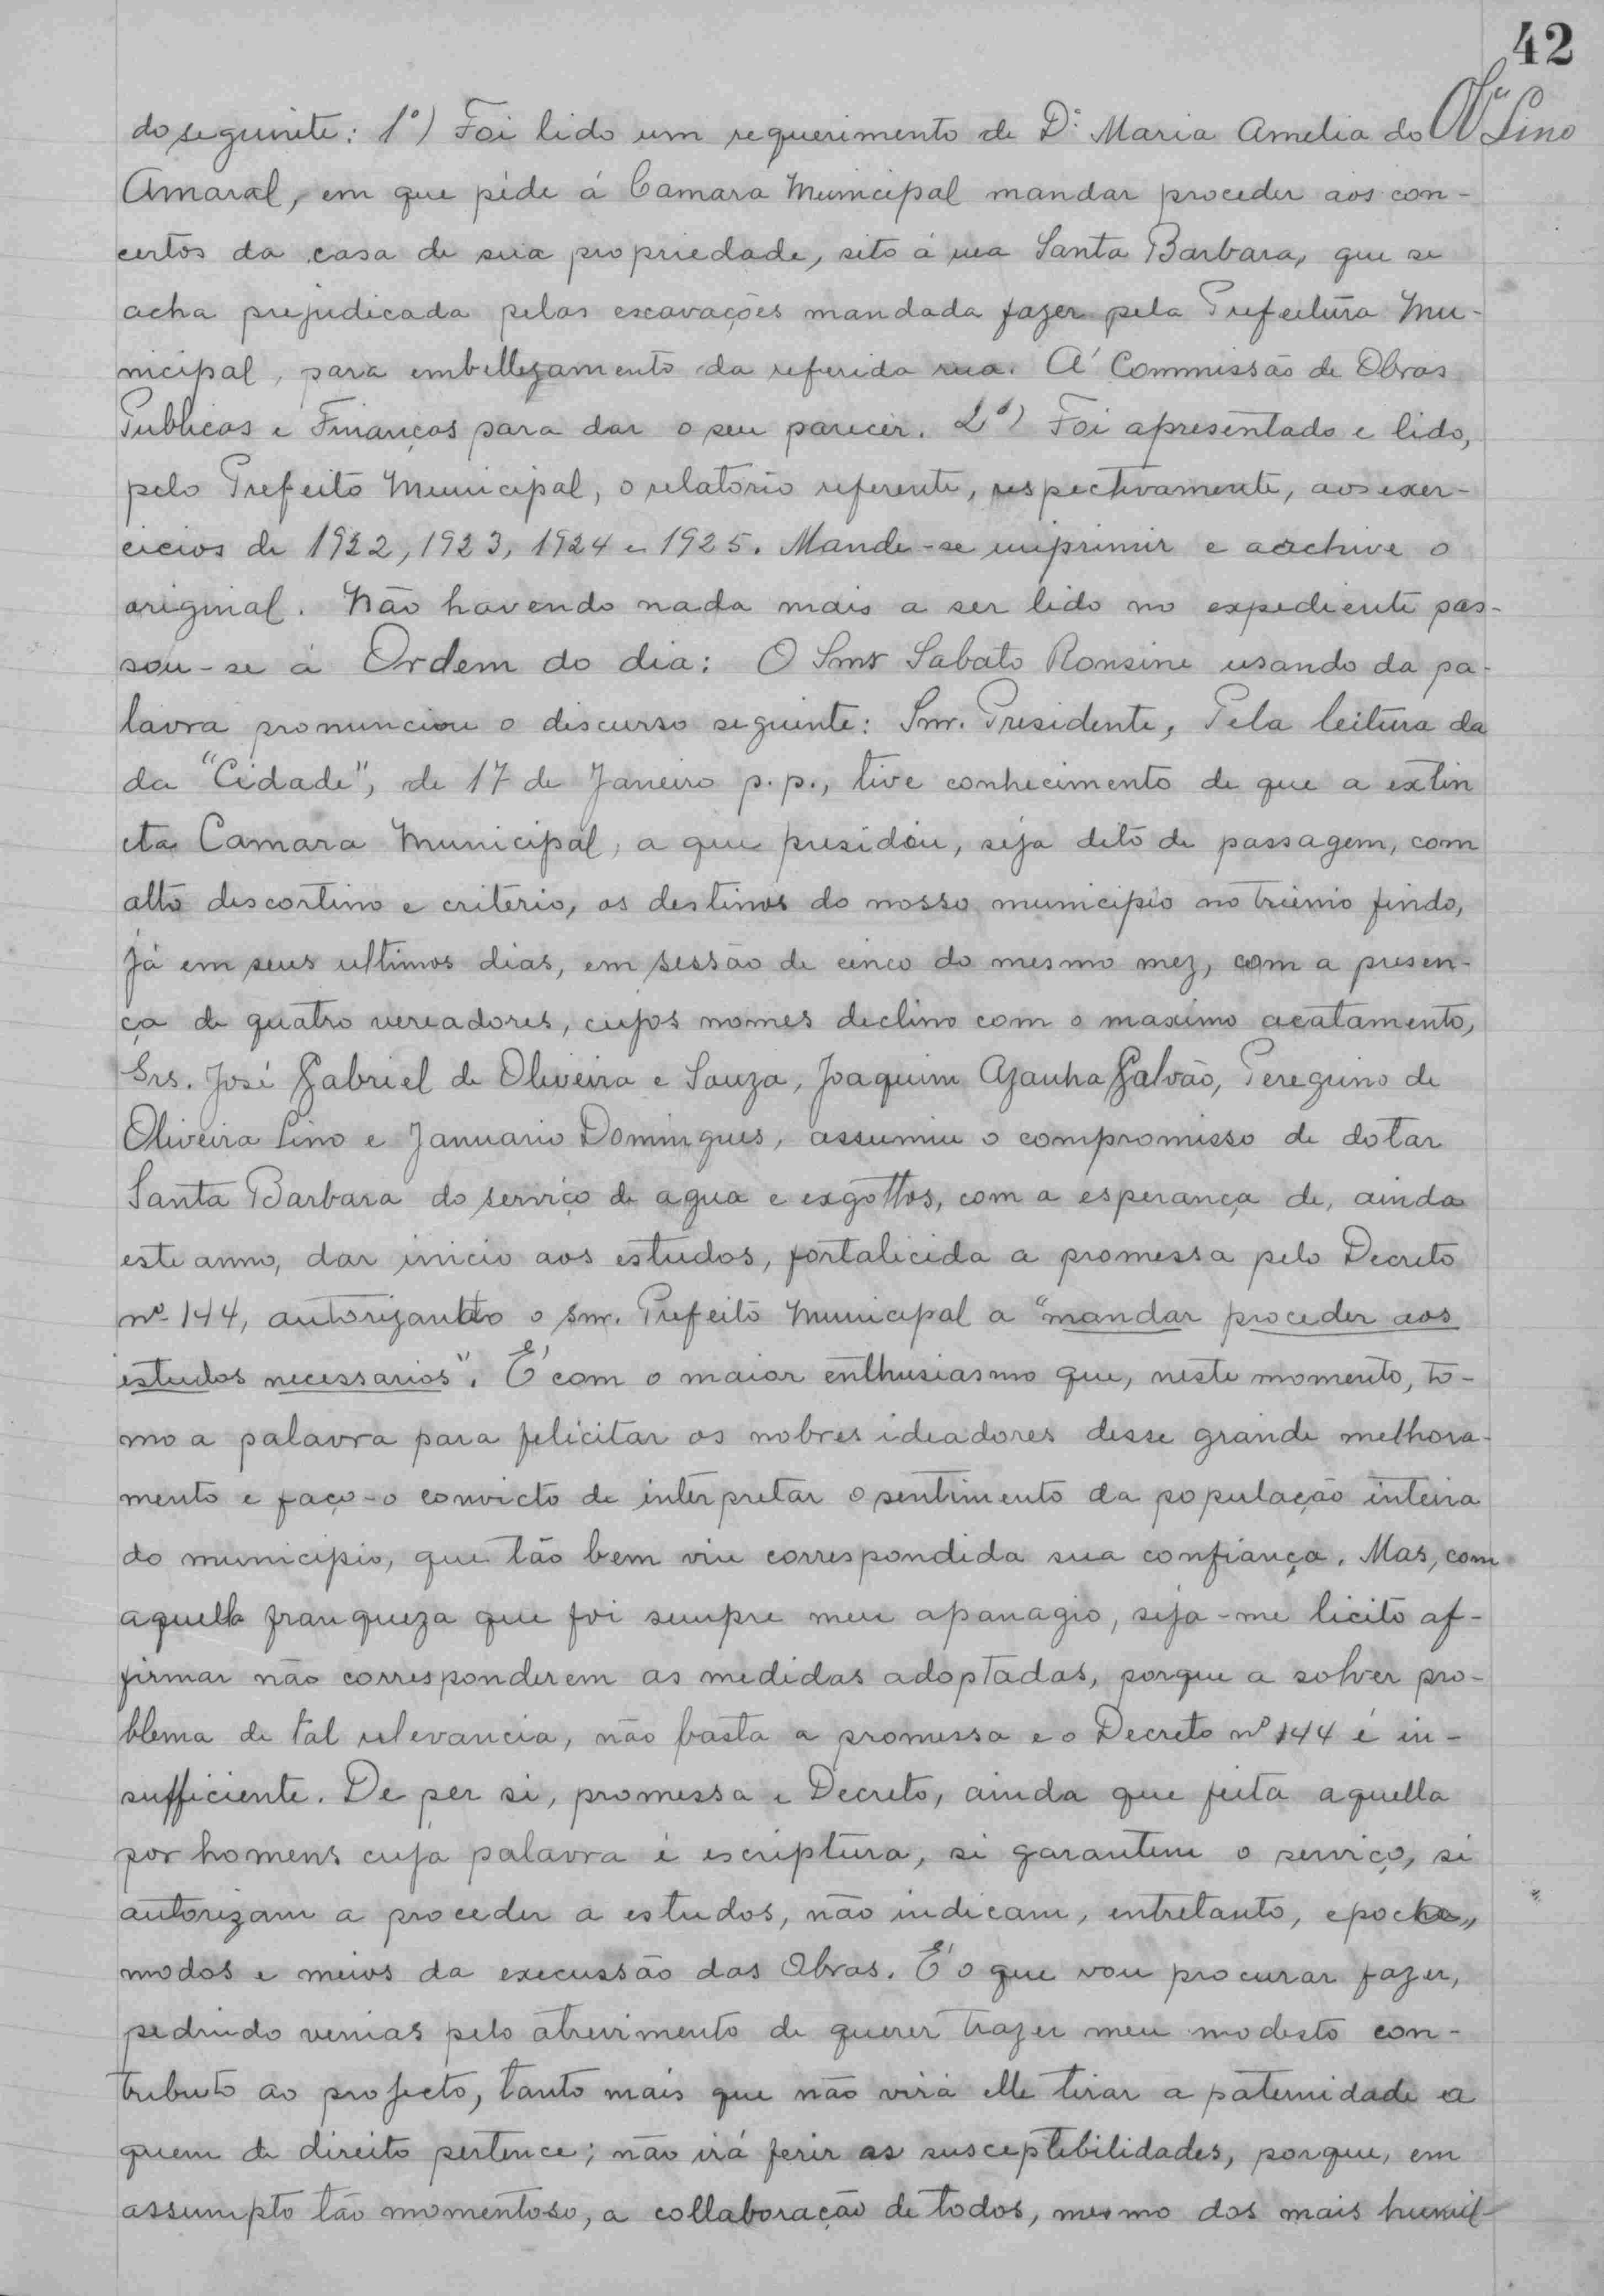 42
do seguinte: 1º) Foi lido um requerimento de Dª Maria Amelia do Olª Lino
Amaral, em que péde á Camara Municipal mandar proceder aos con-
certos da casa de sua propriedade, sito á rua Santa Barbara, que se
acha prejudicada pelas escavações mandada fazer pela Prefeitura Mu-
nicipal, para embellezamento da referida rua. A' Commissão de Obras
Publicas e Finanças para dar o seu parecer. 2º) Foi apresentado e lido,
pelo Prefeito Municipal, o relatorio referente, respectivamente, aos exer-
cicios de 1922, 1923, 1924 e 1925. Mande-se imprimir e archive o
original. Não havendo nada mais a ser lido no expediente pas-
sou-se á Ordem do dia: O Smr Sabato Ronsini usando da pa-
lavra pronunciou o discurso seguinte: Smr. Presidente, Pela leitura da
da "Cidade", de 17 de Janeiro p.p., tive conhecimento de que a extin
cta Camara Municipal, a que presidiu, seja dito de passagem, com
alto descortino e criterio, os destinos do nosso municipio no trienio findo,
já em seus ultimos dias, em sessão de cinco do mesmo mez, com a presen-
ça de quatro vereadores, cujos nomes declino com o maximo acatamento,
Srs. José Gabriel de Oliveira e Souza, Joaquim Azanha Galvão, Peregrino de
Oliveira Lino e Januario Domingues, assumiu o compromisso de dotar
Santa Barbara do serviço de agua e exgottos, com a esperança de, ainda
este anno, dar inicio aos estudos, fortalicida a promessa pelo Decreto
nº 144, autorizando o Smr. Prefeito Municipal a "mandar proceder aos
estudos necessarios". E' com o maior enthusiasmo que, neste momento, to-
mo a palavra para felicitar os nobres ideadores desse grande melhora-
mento e faço-o convicto de interpretar o sentimento da população inteira
do municipio, que tão bem viu correspondida sua confiança. Mas, com
aquella franqueza que foi sempre meu apanagio, seja-me licito af-
firmar não corresponderem as medidas adoptadas, porque a solver pro-
blema de tal relevancia, não basta a promessa e o Decreto nº 144 é in-
sufficiente. De per si, promessa e Decreto, ainda que feita aquella
por homens cuja palavra é escriptura, si garantem o serviço, si
autorizam a proceder a estudos, não indicam, entretanto, epocha,
modos e meios da execussão das Obras. E' o que vou procurar fazer,
pedindo venias pelo atrevimento de querer trazer meu modesto con-
tributo ao projecto, tanto mais que não virá elle tirar a paternidade a
quem de direito pertence; não irá ferir as susceptibilidades, porque, em
assumpto tão momentoso, a collaboração de todos, mesmo dos mais humil-